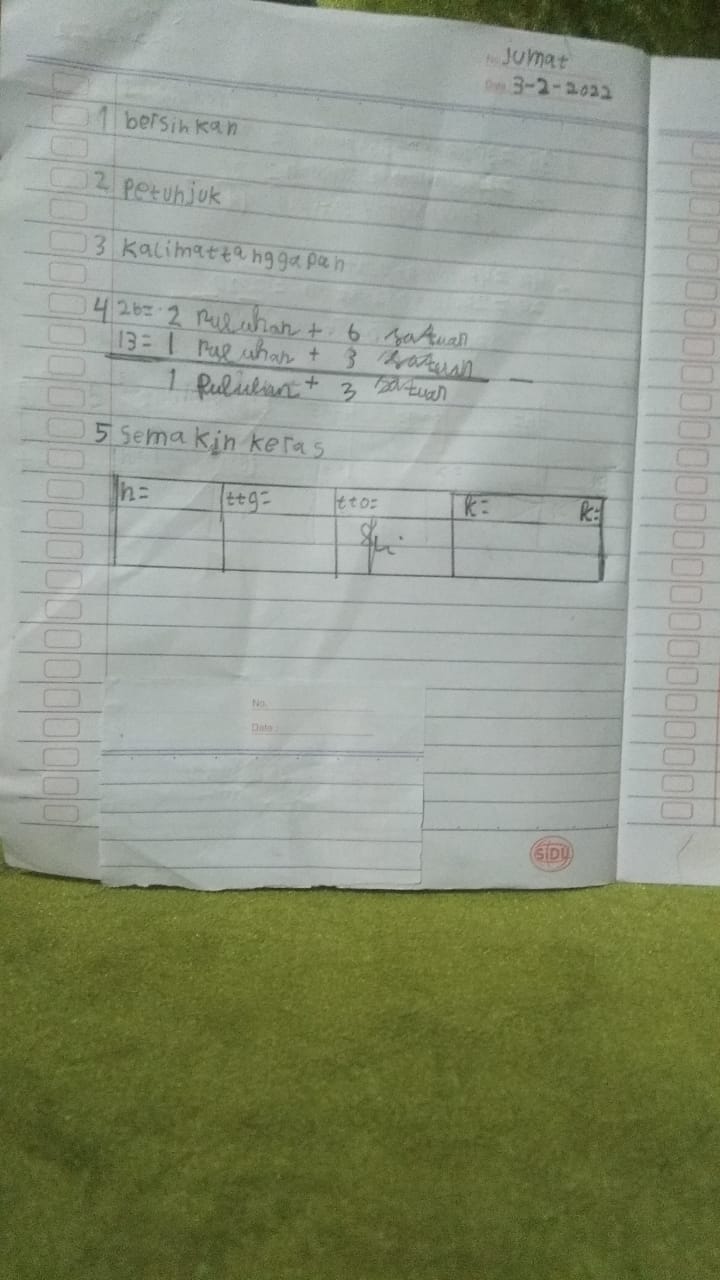 No. Jumat
Date 3-2-2022
1 bersihkan
2 Petunjuk
3 kalimat tanggapan
4 26 = 2 Puluhan + 6 satuan
13 = 1 Puluhan + 3 satuan
1 Puluhan + 3 satuan
5 Semakin keras
h= ttg= tto= k= k=
No.
Date :
SIDU